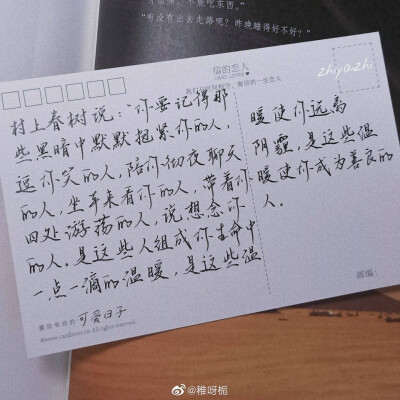 才血肺。不能吃东西。”
“有没有出去走路呢？昨晚睡得好不好？”
信的恋人
CARD LOVER
zhiya.zhi
村上春树说：“你要记得那
些黑暗中默默抱紧你的人，
逗你笑的人，陪你彻夜聊天
的人，坐车来看你的人，带着你
四处游荡的人，说想念你
的人。是这些人组成你生命中
一点一滴的温暖，是这些温
暖使你远离
阴霾，是这些温
暖使你成为善良的
人。
可爱日子
©www.cardlover.cn All rights reserved.
邮编：
@稚呀栀